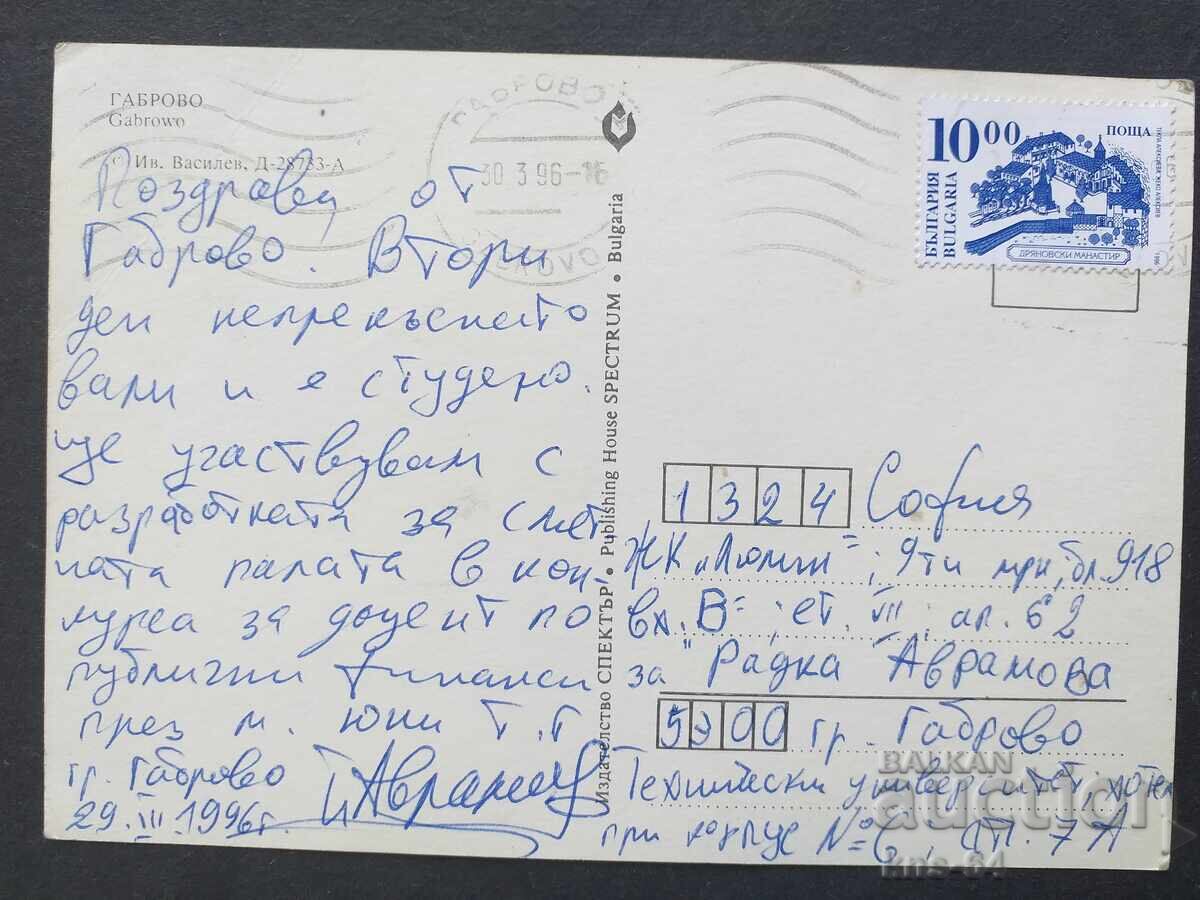 ГАБРОВО
Gabrowo
© Ив. Василев, Д-28733-А
Поздрави от
Габрово. Втори
ден непрекъснато
вали и е студено.
Ще участвувам с
разработката за смет
ната палата в кон-
курса за доцент по
публични финанси
през м. юни т.г
гр. Габрово
29.III.1996г.
Аврамов
ГАБРОВО
30 3 96-16
Издателство СПЕКТЪР • Publishing House SPECTRUM • Bulgaria
10 00
ПОЩА
БЪЛГАРИЯ
BULGARIA
ДРЯНОВСКИ МАНАСТИР
1996
1324 София
ЖК „Люлин"; 9ти мрн, бл. 918
вх. В"; ет. VII; ап. 62
за "Радка Аврамова
5300 гр. Габрово
Технически университет, хотел
при корпус №6, ст. 7А
BALKAN
auction
kns-64